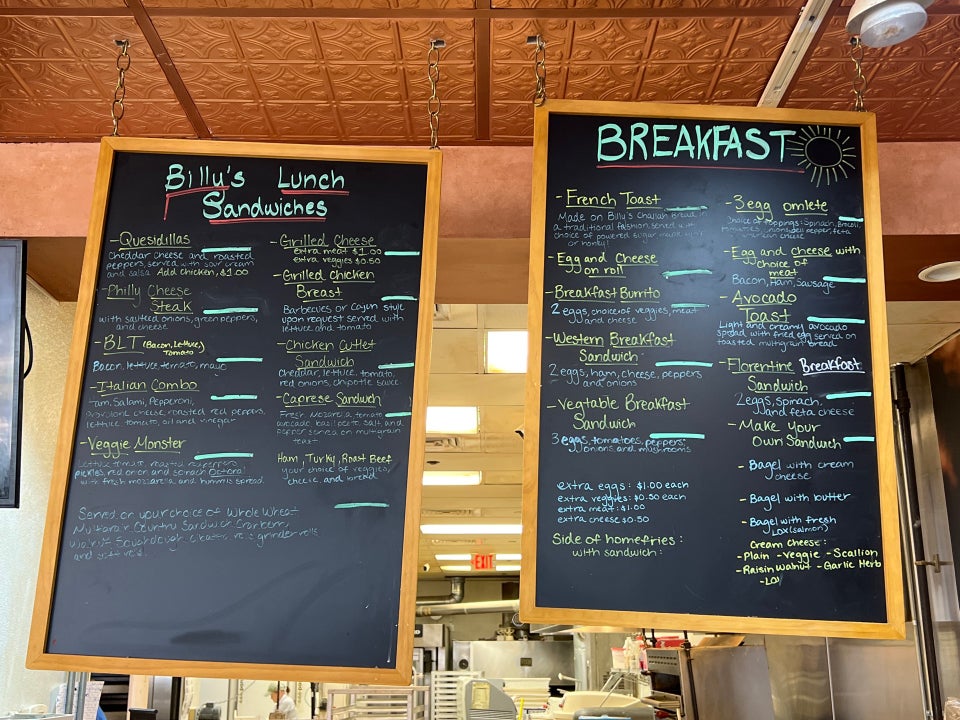 Billy's Lunch
Sandwiches
- Quesidillas
Cheddar cheese and roasted
peppers, served with sour cream
and salsa. Add chicken, $1.00
- Philly Cheese
Steak
with sauteed onions, green peppers,
and cheese
- BLT (Bacon, Lettuce,
Tomato)
Bacon, lettuce, tomato, mayo
- Italian Combo
Ham, Salami, Pepperoni,
provolone cheese, roasted red peppers,
lettuce, tomato, oil and vinegar
- Veggie Monster
Lettuce, tomato, roasted red peppers
pickles, red onion and spinach
with fresh mozzarella and hummus spread
Served on your choice of Whole Wheat
Country Sandwich
Sourdough, rolls
and
- Grilled Cheese
extra meat $1.00
extra veggies $0.50
- Grilled chicken
Breast
Barbecies or Cajun style
upon request served with
lettuce and tomato
- Chicken Cutlet
Sandwich
Cheddar, lettuce, tomato,
red onions, chipotle sauce
- Caprese Sandwich
Fresh Mozarella, tomato,
avocado, basil pesto, salt, and
pepper served on multigrain
toast
Ham, Turky, Roast Beef
your choice of veggies,
cheese, and bread
BREAKFAST
- French Toast
Made on Billy's Challah Bread in
a traditional fashion, served with
choice of powered sugar, maple syrup
or honey!
- Egg and Cheese
on roll
- Breakfast Burrito
2 eggs, choice of veggies, meat
and cheese
- Western Breakfast
Sandwich
2 eggs, ham, cheese, peppers
and onions
- Vegtable Breakfast
Sandwich
3 eggs, tomatoes, peppers,
onions and mushrooms
extra eggs: $1.00 each
extra veggies: $0.50 each
extra meat: $1.00
extra cheese $0.50
Side of homefries:
with sandwich:
- 3 egg omlete
Choice of toppings: Spinach, Brocoli,
tomatoes, onions, bell pepper, feta,
american cheese
- Egg and cheese with
choice of
meat
Bacon, Ham, Sausage
- Avocado
Toast
Light and creamy avocado
spread with fried egg served on
toasted multigrain bread
- Florentine Breakfast
Sandwich
2 eggs, spinach,
and feta cheese
- Make Your
Own Sandwich
- Bagel with cream
cheese
- Bagel with butter
- Bagel with fresh
Lox (salmon)
Cream cheese:
- Plain - Veggie - Scallion
- Raisin Walnut - Garlic Herb
- Lox
EXIT